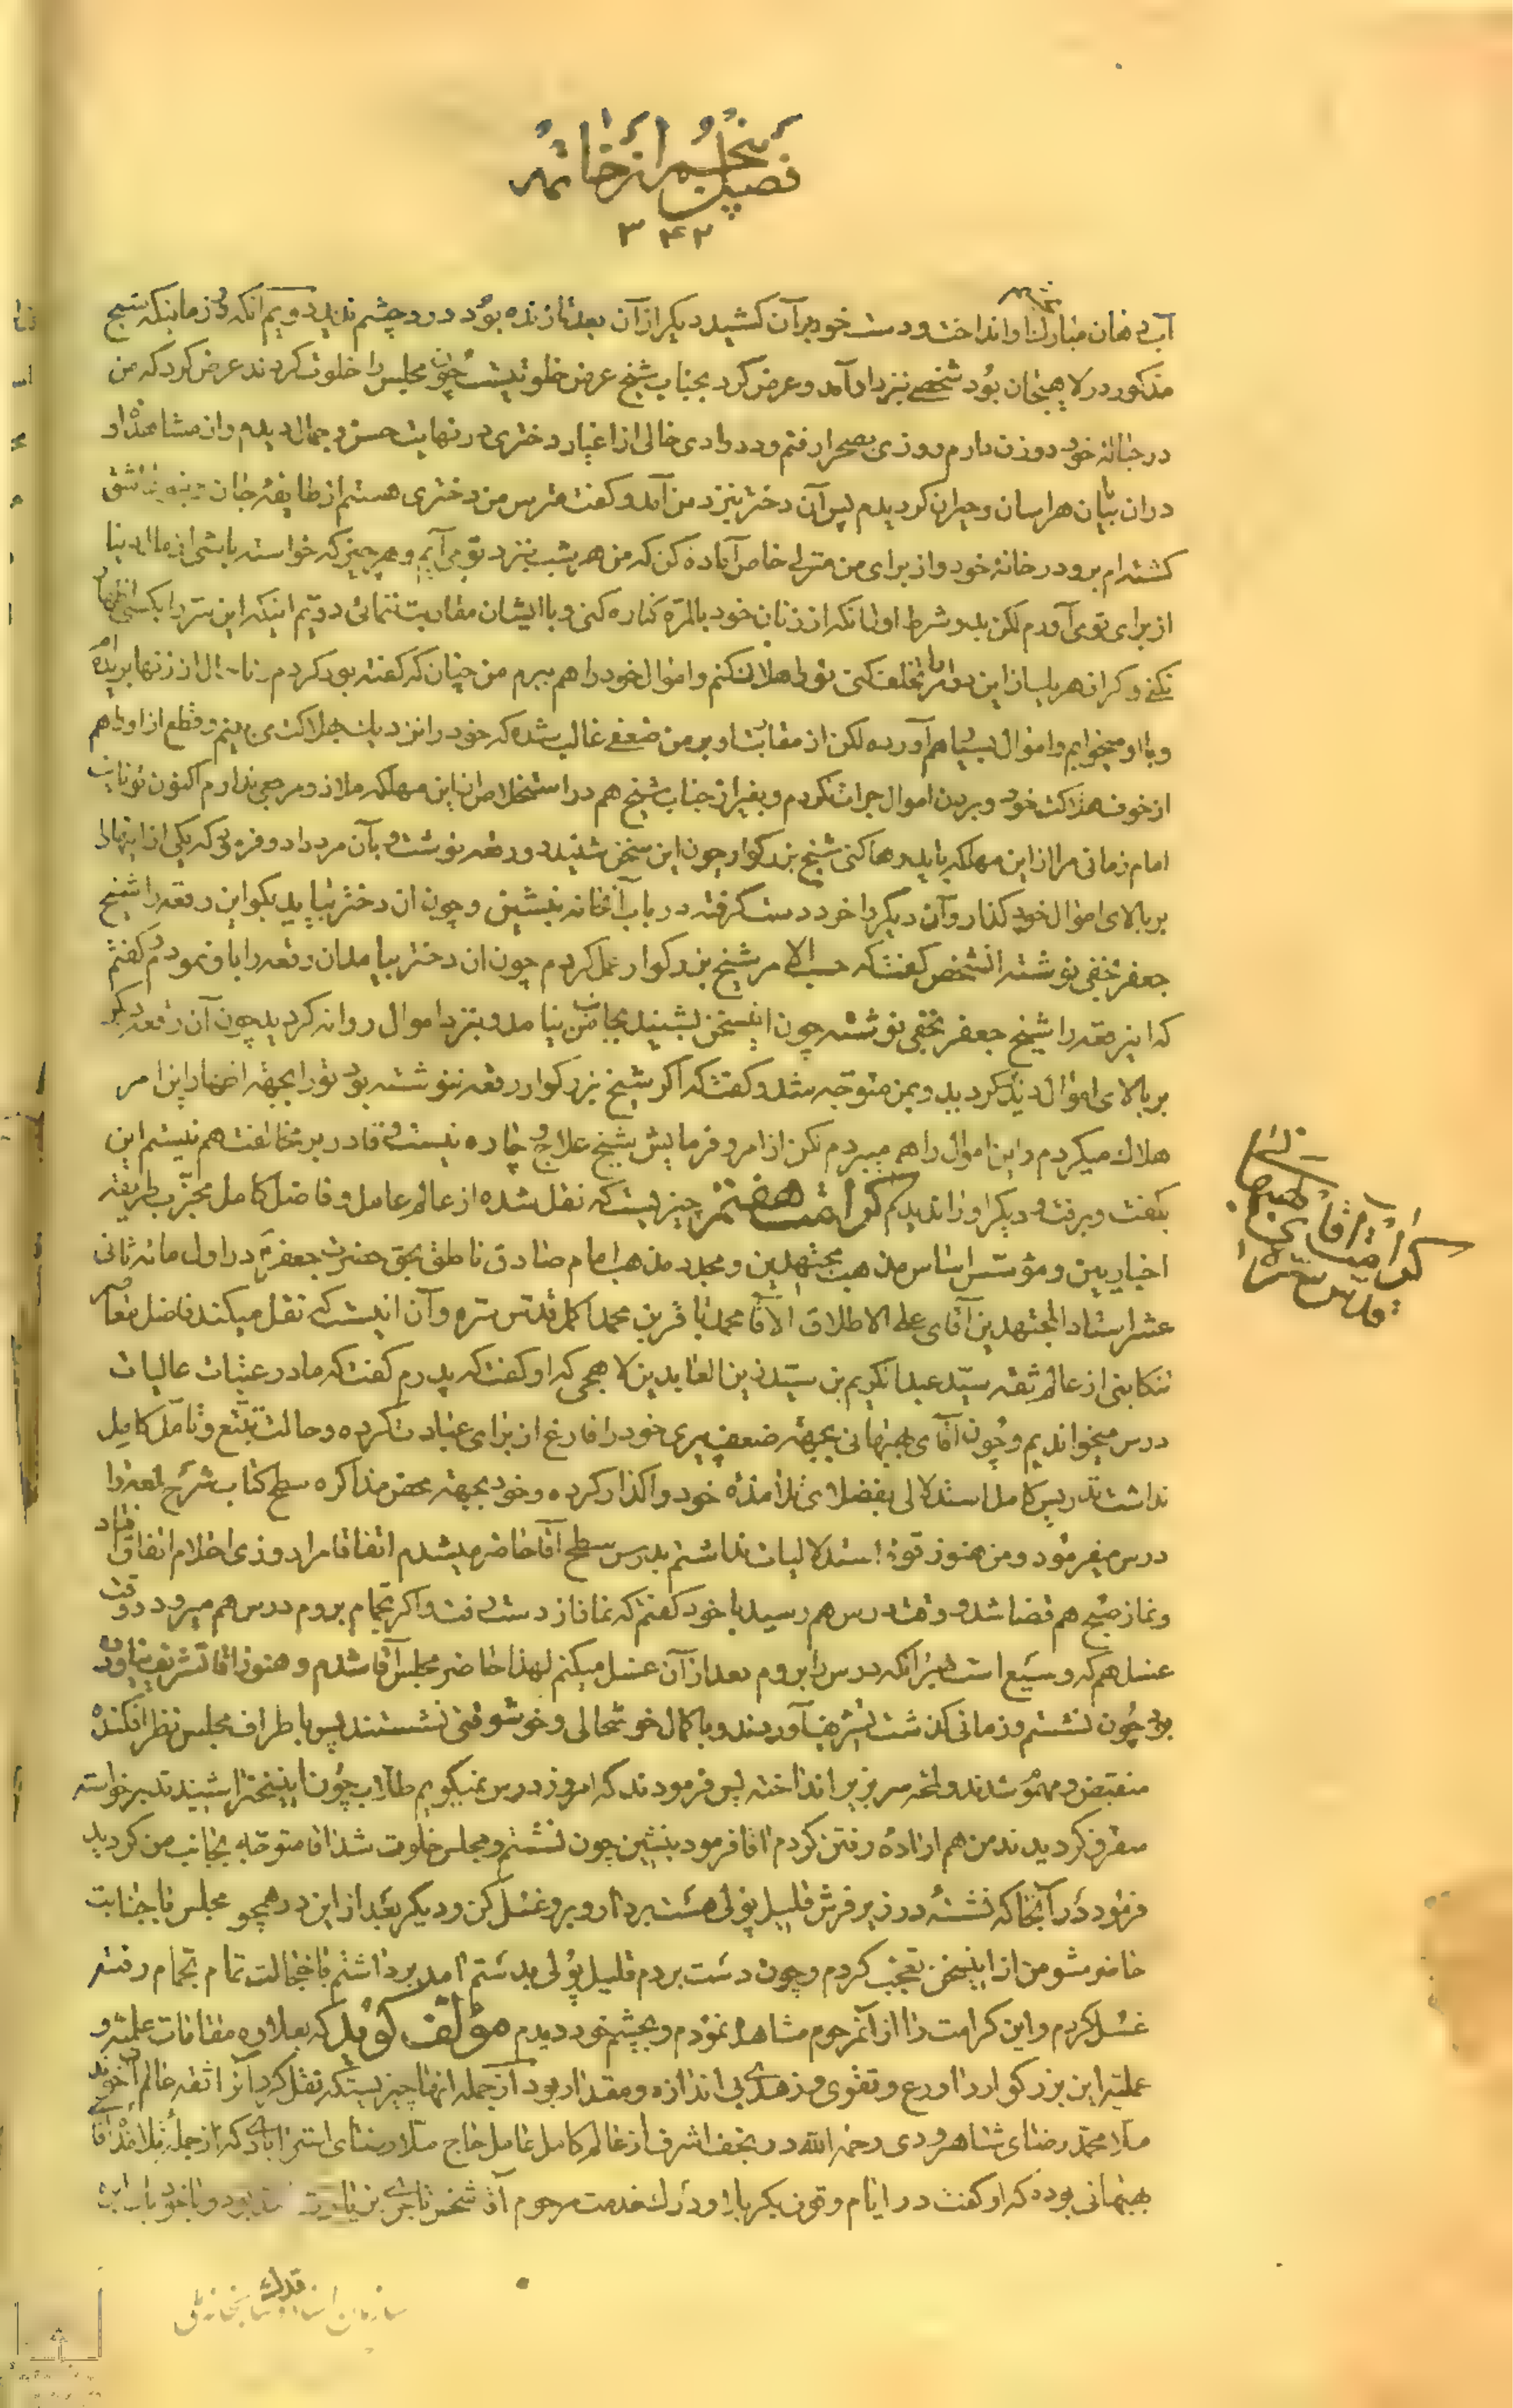 فصل پنجم از خاتمه
۳۴۲
آب دهان مبارک را انداخت و دست خود بر آن کشید دیگر از آن بعد تا زنده بود درد چشم ندید دویم آنکه در زمانیکه شیخ
مذکور در لاهیجان بود شخصی نیز نزد آمد و عرض کرد بجناب شیخ عرض خلوتیست چون مجلس را خلوت کردند عرض کرد که من
در خانهٔ خود دو زن دارم روزی بصحرا رفتم و در وادی خالی از اغیار دختری در نهایت حسن و جمال دیدم و از مشاهدهٔ او
در آن بیابان هراسان و حیران گردیدم پس آن دختر بنزد من آمد و گفت مترس من دختری هستم از طایفهٔ جان عاشق
گشته‌ام برو در خانهٔ خود و از برای من منزلی خاص آماده کن که من هر شب بنزد تو می‌آیم و هر چیز که خواسته باشی از مال دنیا
از برای تو می‌آورم لکن بدو شرط اول آنکه از زنان خود بالمره کناره کنی و با ایشان مقاربت ننمائی دویم اینکه این سر را بکسی اظهار
نکنی و گر از هر یک از این دو امر تخلف کنی تو را هلاک کنم و اموال خود را هم ببرم من چنان که گفته بود کردم از زنها بریده
و با او میخوابم و اموال بسیار هم آورده لکن از مقاربت او بر من ضعفی غالب شده که خود را نزدیک بهلاکت می‌بینم و قطع از او را هم
از خوف هلاکت خود و بردن اموال جرات نکردم و بغیر از جناب شیخ هم در استخلاص از این مهلکه ملاذ و مرجعی ندارم اکنون تو نایب
امام زمانی مرا از این مهلکه باید رها کنی شیخ بزرگوار چون این سخن شنید دو رقعه نوشت و بآن مرد داد و فرمود که یکی از اینها را
بر بالای اموال خود گذار و آن دیگر را خود در دست گرفته در باب آنخانه بنشین و چون آن دختر بیاید بگو این رقعه را شیخ
جعفر نجفی نوشته آن شخص گفت که حسب الامر شیخ بزرگوار عمل کردم چون آن دختر بیامد آن رقعه را باو نمودم گفتم
که این رقعه را شیخ جعفر نجفی نوشته چون این سخن بشنید بجانب من نیامد و بنزد اموال روانه گردید چون آن رقعه دیگر
بر بالای اموال دید گردید و بمن متوجه شد و گفت که اگر شیخ بزرگوار رقعه ننوشته بود تو را بجهة اظهار این امر
هلاک میکردم و این اموال را هم میبردم لکن از امر و فرمایش شیخ علاج و چاره نیست و قادر بر مخالفت هم نیستم این
بگفت و برفت و دیگر او را ندیدم کرامت هفتم چیزیست که نقل شده از عالم عامل و فاضل کامل مخرب طریقهٔ
اخباریین و مؤسس اساس مذهب مجتهدین و مجدد مذهب امام صادق ناطق بحق حضرت جعفر در اول مائهٔ ثانی
عشر استاد المجتهدین آقای علی الاطلاق الآقا محمد باقر بن محمد اکمل قدس سره و آن اینست که نقل میکند فاضل معاصر
تنکابنی از عالم ثقه سید عبدالکریم بن سید زین العابدین لاهیجی که او گفت که پدرم گفت که ما در عتبات عالیات
درس میخواندیم و چون آقای بهبهانی بجهة ضعف پیری خود را فارغ از برای عبادت کرده و حالت تتبع و تأمل کامل
نداشت تدریس کامل استدلالی بفضلای تلامذه خود واگذار کرده و خود بجهة محض مذاکره سطح کتاب شرح لمعه را
درس میفرمود و من هنوز قوهٔ استدلالیات نداشتم بدرس سطح آقا حاضر میشدم اتفاقا مرا روزی احتلام اتفاق افتاد
و نماز صبح هم قضا شد و وقت درس هم رسید با خود گفتم که نماز از دست رفت و اگر بحمام بروم درس هم میرود و وقت
غسل هم که وسیع است بهتر آنکه درس را بروم بعد از آن غسل میکنم لهذا حاضر مجلس آقا شدم و هنوز آقا تشریف نیاورده
بود چون نشستم و زمانی گذشت تشریف آوردند و با کمال خوشحالی و خوشوقتی نشستند پس باطراف مجلس نظر افکنده
منقبض و مهموم شدند و لمحه سر بزیر انداخته پس فرمودند که امروز درس نمیگویم طلاب چون این سخن را شنیدند برخواسته
متفرق گردیدند من هم اراده رفتن کردم آقا فرمود بنشین چون نشستم و مجلس خلوت شد آقا متوجه بجانب من گردید
فرمود در آنجا که نشستهٔ در زیر فرش قلیل پولی هست بردار و برو غسل کن و دیگر بعد از این در همچو مجلس با جنابت
حاضر مشو من از این سخن تعجب کردم و چون دست بردم قلیل پولی بدستم آمد برداشتم با خجالت تمام بحمام رفته
غسل کردم و این کرامت را از آنمرحوم مشاهده نمودم و بچشم خود دیدم مؤلف گوید که بعلاوه مقامات علمیه و
عملیه این بزرگوار را ورع و تقوی و زهدی بی‌اندازه و مقدار بود از جمله آنها چیزیستکه نقل کرد آنرا ثقه عالم آخوند
ملا محمد رضای شاهرودی رحمه الله در نجف اشرف از عالم کامل عامل حاج ملا رضای استرابادی که از جمله تلامذه آقا
بهبهانی بوده که او گفت در ایام وقوف بکربلا و درک خدمت مرحوم آقا شخص تاجری بزیارت
کرامت آقای بهبهانی
قدس سره
سازمان اسناد و کتابخانه ملی